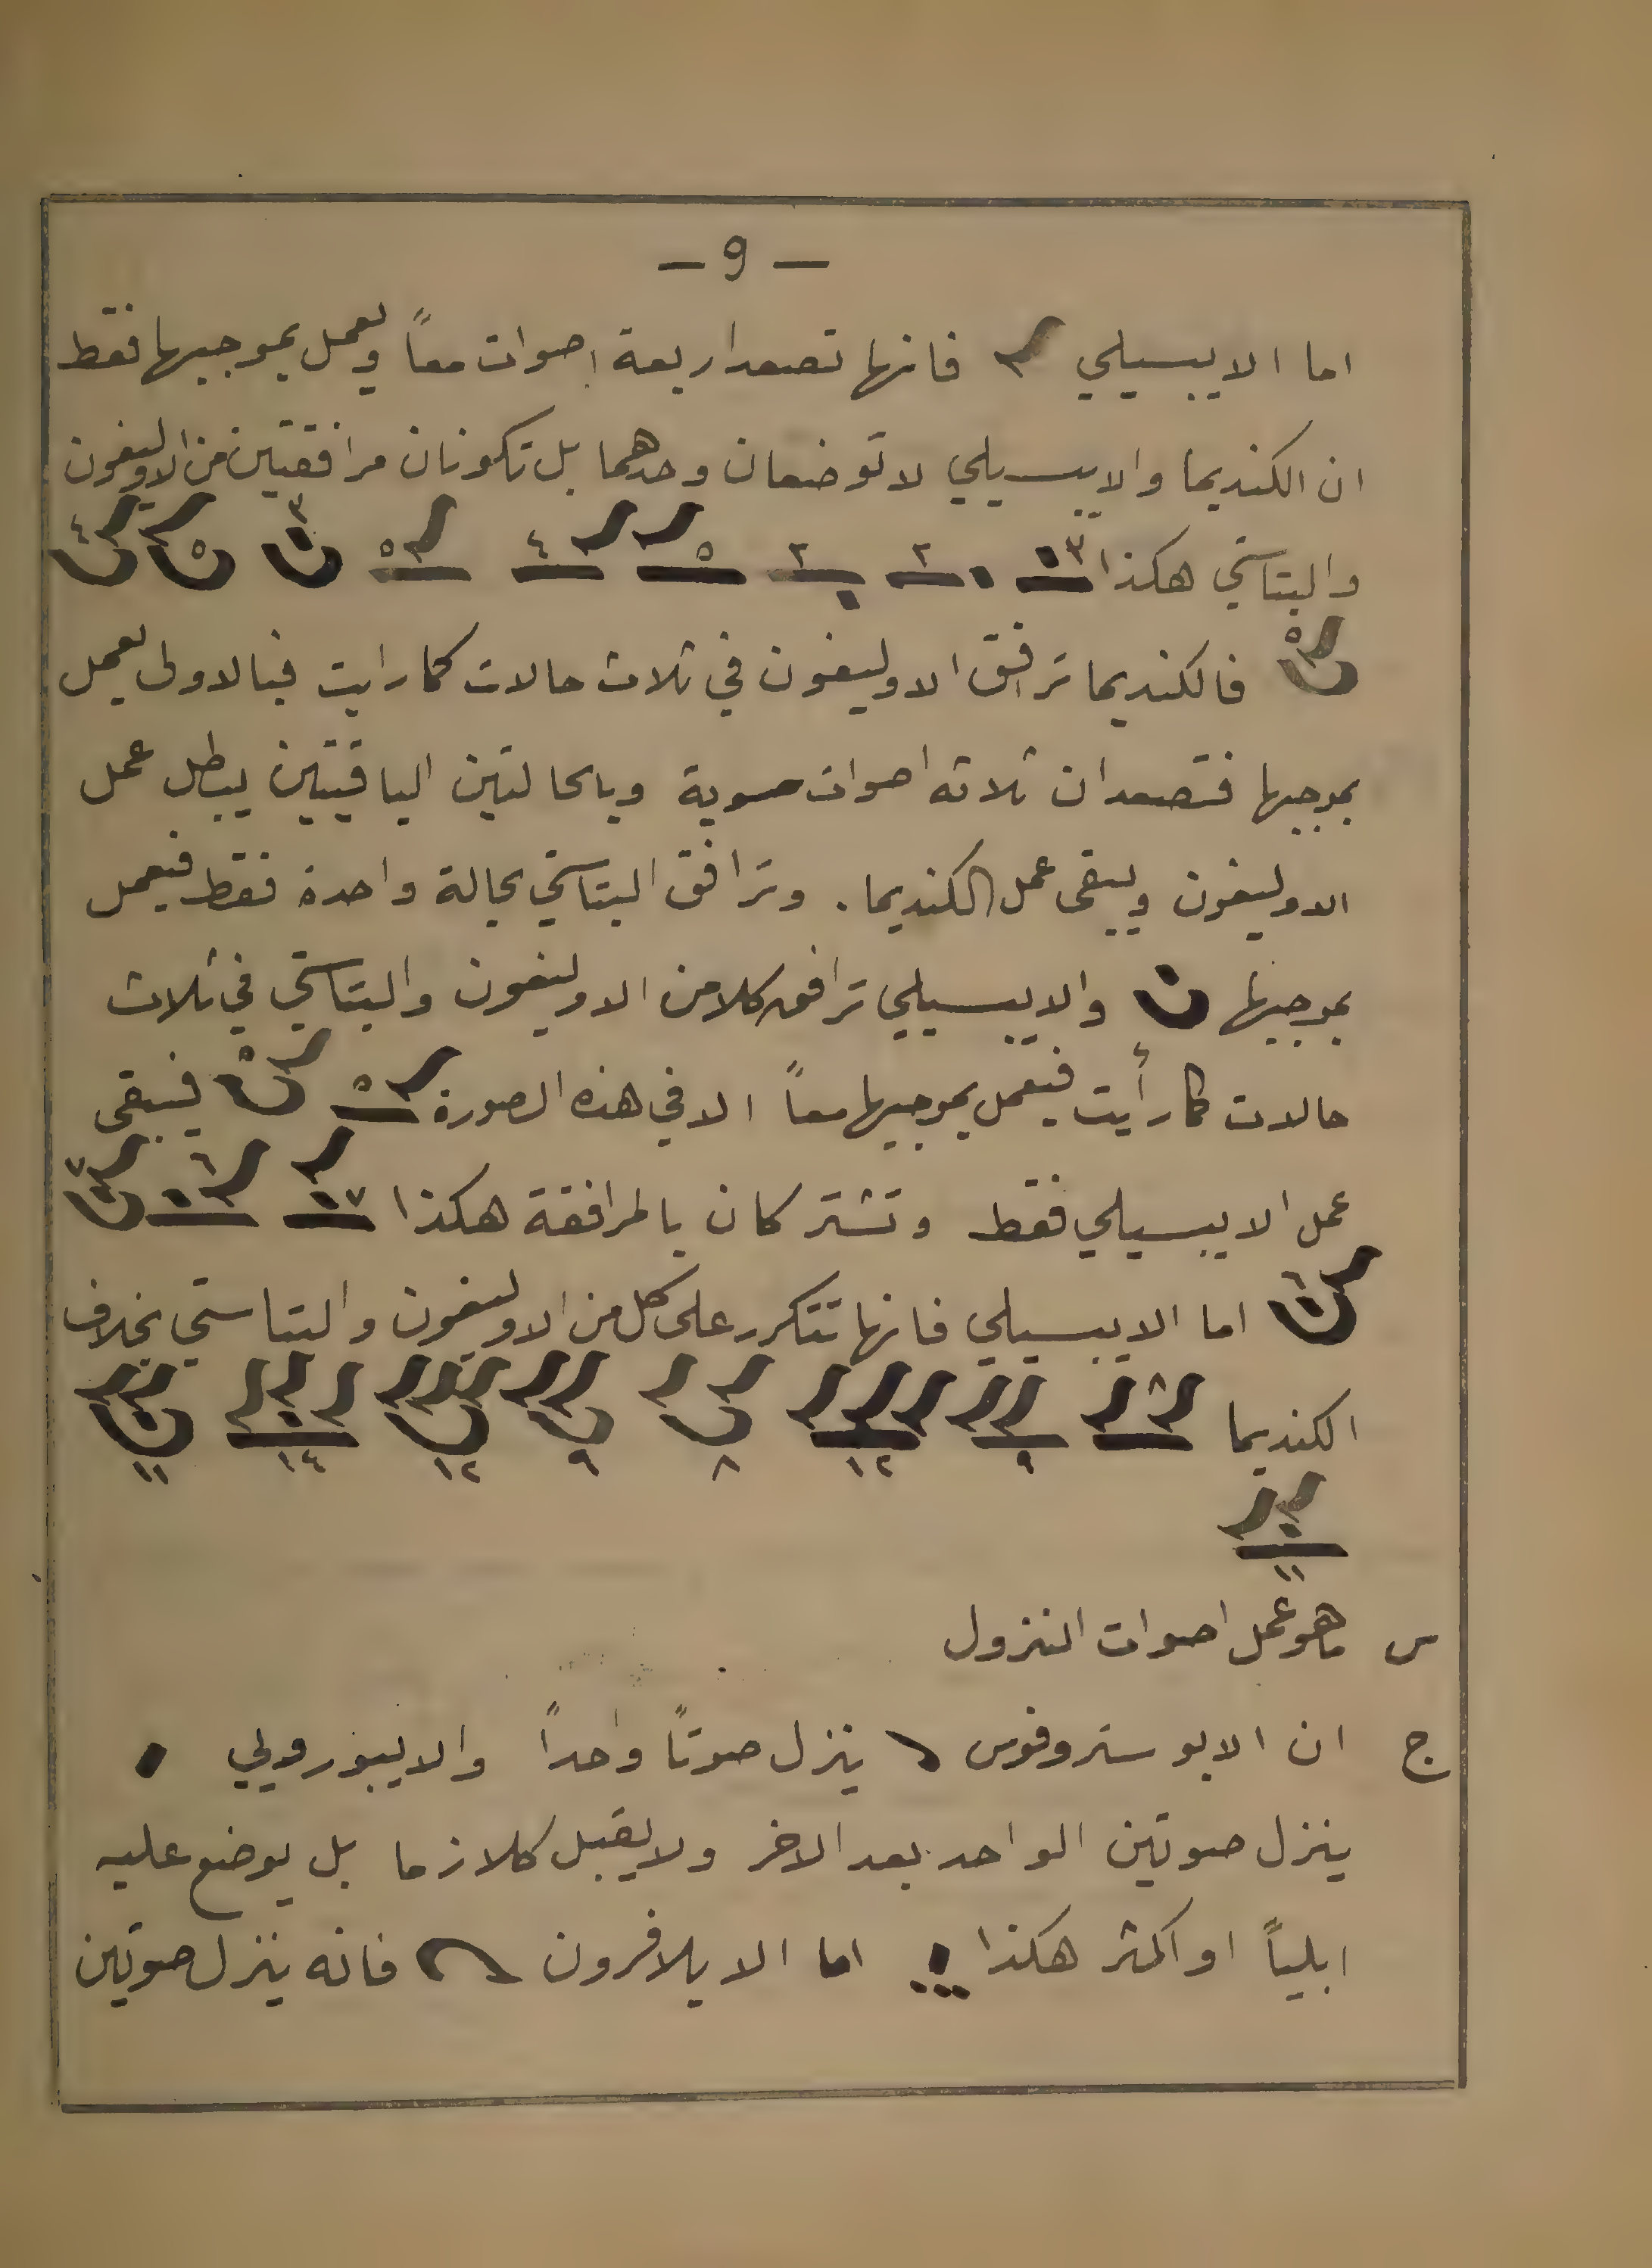 - 9 -
اما الايبسيلي فانها تصعد اربعة اصوات معاً ويعمل بموجبها فقط
ان الكنديما والايبسيلي لا توضعان وحدهما بل تكونان مرافقتين من الاوليغون
والبتاستي هكذا ٣ ٢ ٢ ٥ ٤ ٥ ٣ ٥ ٤
٥ فالكنديما ترافق الاوليغون في ثلاث حالات كما رايت فبالاولى يعمل
بموجبها فتصعدان ثلاثه اصوات سوية وبالحالتين الباقيتين يبطل عمل
الاوليغون ويبقى عمل الكنديما . وترافق البتاستي بحالة واحدة فقط فيعمل
بموجبها والايبسيلي ترافق كلا من الاوليغون والبتاستي في ثلاث
حالات كما رأيت فيعمل بموجبها معاً الا في هذه الصورة ٥ ٥ فيبقى
عمل الايبسيلي فقط وتشتركان بالمرافقة هكذا ٧ ٦ ٧
٦ اما الايبسيلي فانها تتكرر على كل من الاوليغون والبتاستي بخلاف
الكنديما ٨ ٩ ١٢ ٨ ٩ ١٢ ١٤ ١١
١١
س ما هو عمل اصوات النزول
ج ان الابوستروفوس ينزل صوتاً واحداً والايبورويي
ينزل صوتين الواحد بعد الاخر ولا يقبل كلازما بل يوضع عليه
ابلياً او اكثر هكذا اما الايلافرون فانه ينزل صوتين